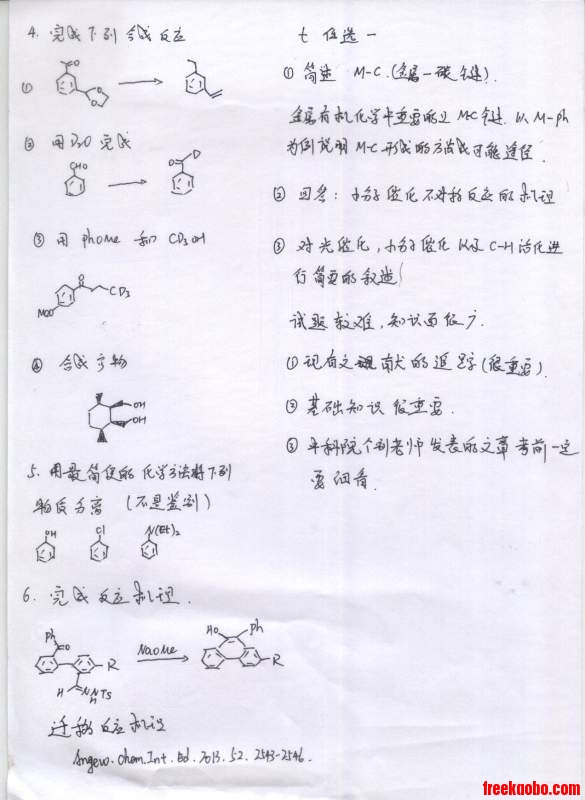 4. 完成下列合成反应
①
② 用 D₂O 完成
CHO
D
③ 用 phome 和 CD₃OH
O
CD₃
MeO
④ 合成产物
OH
OH
5. 用最简便的化学方法将下列
物质分离 (不是鉴别)
OH
Cl
N(Et)₂
6. 完成反应机理.
Ph
O
R
H
N
NTs
H
NaOMe
HO
Ph
R
迁移反应机理
Angew. Chem. Int. Ed. 2013. 52. 2543-2546.
七 任选一
① 简述 M-C.(金属一碳键).
金属有机化学中重要的 MC键. 以 M-ph
为例说明 M-C 形成的方法或可能途径.
② 回答: 小分子催化不对称反应的机理
③ 对光催化, 小分子催化以及 C-H 活化进
行简要的叙述
试题较难, 知识面很广.
① 现有文献的追踪(很重要).
② 基础知识很重要.
③ 中科院个别老师发表的文章考前一定
要细看.
freekaobo.com